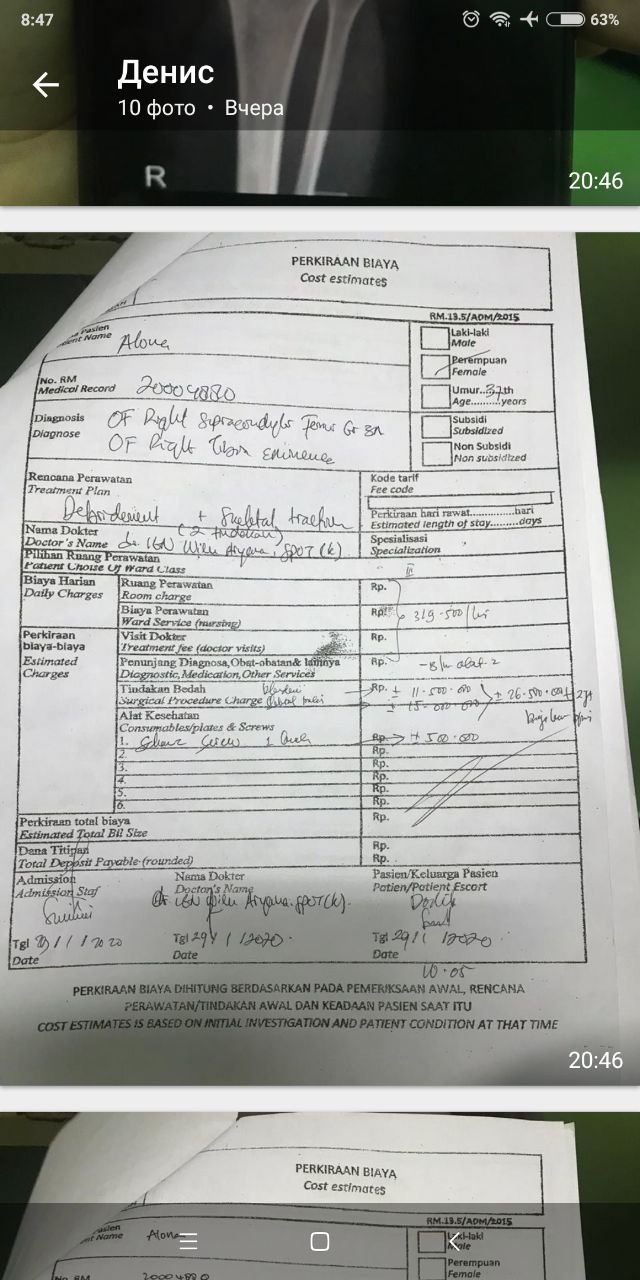 8:47
63%
Денис
10 фото • Вчера
R
20:46
PERKIRAAN BIAYA
Cost estimates
RM.13.5/ADM/2015
Pasien
Name Alona
Laki-laki
Male
Perempuan
Female
No. RM
Medical Record 20004880
Umur..37th
Age.........years
Diagnosis OF Right Supracondylar Femur Gr
Diagnose OF Right Eminence
Subsidi
Subsidized
Non Subsidi
Non subsidized
Rencana Perawatan
Treatment Plan
Kode tarif
Fee code
Debridement + Skeletal traction
(2 tindakan)
Perkiraan hari rawat...............hari
Estimated length of stay.........days
Nama Dokter
Doctor's Name dr. IGN Wien Aryana, SPOT (K)
Spesialisasi
Specialization
Pilihan Ruang Perawatan
Patient Choise Of Ward Class III
Biaya Harian
Daily Charges
Ruang Perawatan
Room charge
Rp.
Biaya Perawatan
Ward Service (nursing)
Rp. 319.500/hr
Perkiraan
biaya-biaya
Estimated
Charges
Visit Dokter
Treatment fee (doctor visits)
Rp.
Penunjang Diagnosa,Obat-obatan& lainnya
Diagnostic,Medication,Other Services
Rp.
Tindakan Bedah
Surgical Procedure Charge
Rp. ± 11.500.000
± 15.000.000
± 26.500.000
Alat Kesehatan
Consumables/plates & Screws
1. Screw 1
Rp. ± 500.000
2.
Rp.
3.
Rp.
4.
Rp.
5.
Rp.
6.
Rp.
Perkiraan total biaya
Estimated Total Bil Size
Rp.
Dana Titipan
Total Deposit Payable (rounded)
Rp.
Rp.
Admission
Admission Staf
Nama Dokter
Doctor's Name
Pasien/Keluarga Pasien
Patien/Patient Escort
dr IGN Wien Aryana. SPOT(K).
Tgl 29/1/2020
Date
Tgl 29/1/2020.
Date
Tgl 29/1/2020.
Date
10.05
PERKIRAAN BIAYA DIHITUNG BERDASARKAN PADA PEMERIKSAAN AWAL, RENCANA
PERAWATAN/TINDAKAN AWAL DAN KEADAAN PASIEN SAAT ITU
COST ESTIMATES IS BASED ON INITIAL INVESTIGATION AND PATIENT CONDITION AT THAT TIME
20:46
PERKIRAAN BIAYA
Cost estimates
RM.13.5/ADM/2015
Name Alona
Laki-laki
Male
Perempuan
Female
No. RM 20004880